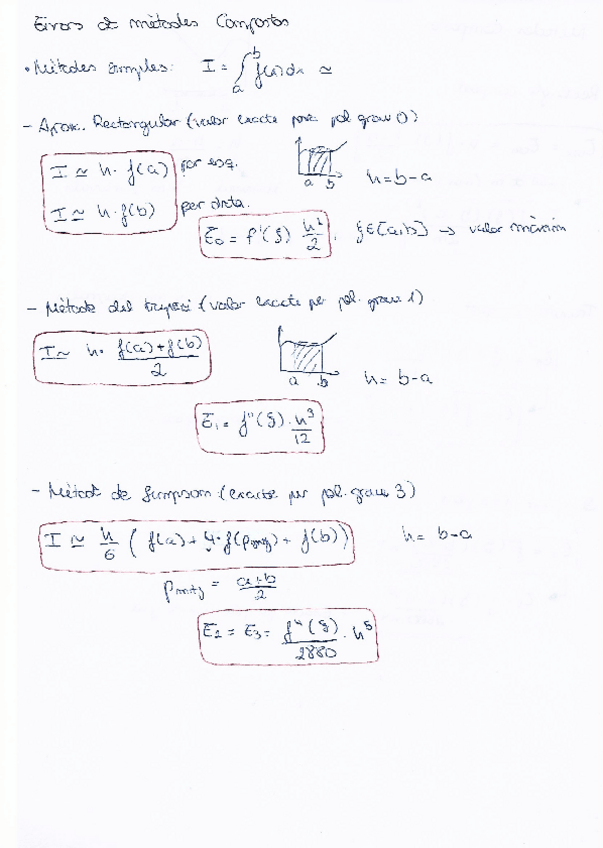 Errors de mètodes Compostos
• Mètodes simples: I = ∫ₐᵇ f(x)dx ≃
- Aprox. Rectangular (valor exacte per pol grau 0)
I ≃ h · f(a) per esq.
a b h = b-a
I ≃ h · f(b) per dreta.
E₀ = f'(ξ) h²/2, ξ∈[a,b] → valor màxim
- Mètode del trapezi (valor exacte per pol. grau 1)
I ≃ h · (f(a)+f(b))/2
a b h = b-a
E₁ = f''(ξ) · h³/12
- Mètode de Simpson (exacte per pol. grau 3)
I ≃ h/6 ( f(a) + 4·f(pmitj) + f(b)) h = b-a
pmitj = (a+b)/2
E₂ = E₃ = f⁴(ξ)/2880 · h⁵